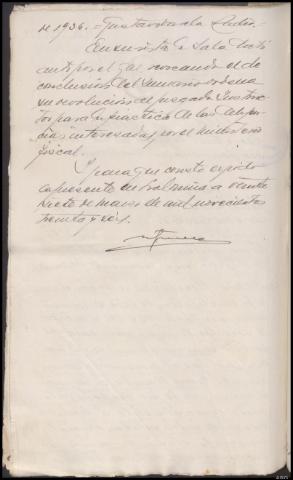 de 1936. - Gustavo
En su vista la Sala dictó
auto por el que revocando el de
conclusión del sumario ordena
su devolución al Juzgado Instruc-
tor para la práctica de las diligen-
cias interesadas por el Ministerio
fiscal.
Y para que conste expido
la presente en a veinte
siete de marzo de mil novecientos
treinta y seis.